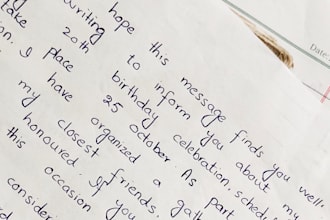 hope this message finds you well
writing to inform you about my
20th birthday celebration, sched
take place 25 October. As par
on. I have organized a gat
my closest friends,
honoured. If you
this occasion
consider
Date: